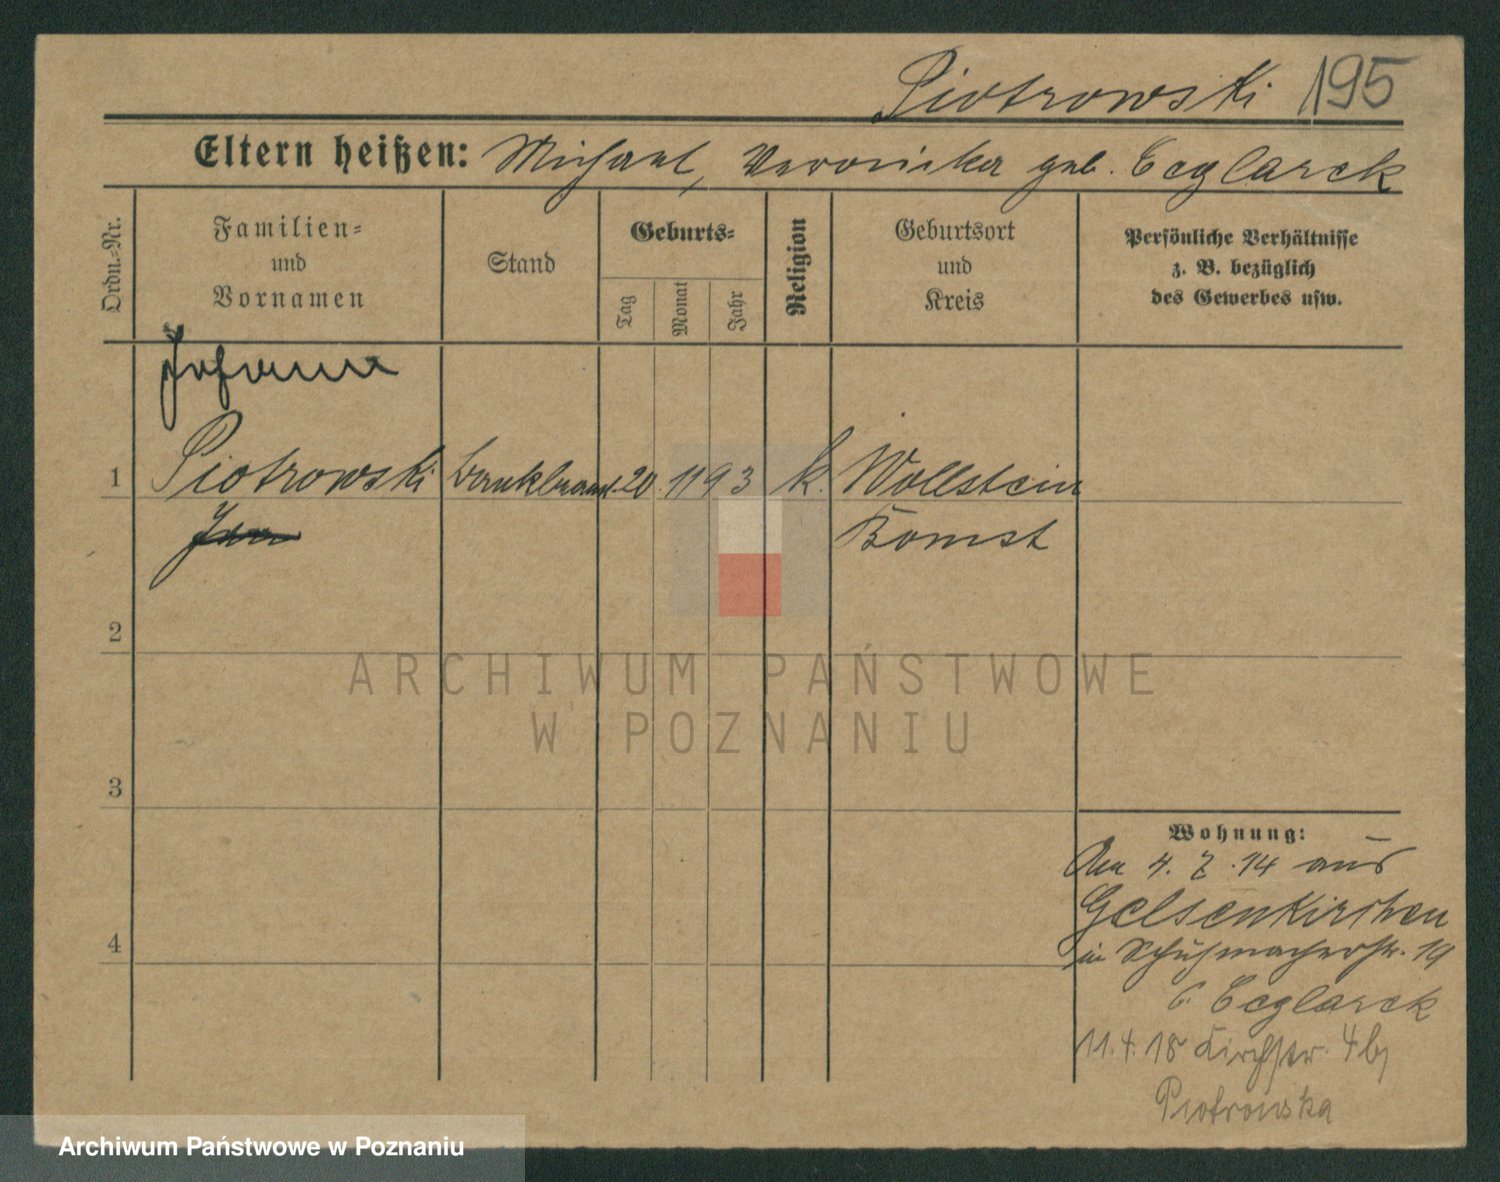 Piotrowski 195
Eltern heißen: Michael, Veronika geb. Ceglarek
Ordn.-Nr.
Familien-
und
Vornamen
Stand
Geburts-
Tag
Monat
Jahr
Religion
Geburtsort
und
Kreis
Persönliche Verhältnisse
z. B. bezüglich
des Gewerbes usw.
Johann
1 Piotrowski 20 11 93 k. Wollstein
Jan
Bomst
2
3
4
Wohnung:
Den 4. 7. 14 aus
Gelsenkirchen
in Schuhmacherstr. 19
b. Ceglarek
11.4.18 Kirchstr. 4 bj
Piotrowska
ARCHIWUM PAŃSTWOWE
W POZNANIU
Archiwum Państwowe w Poznaniu